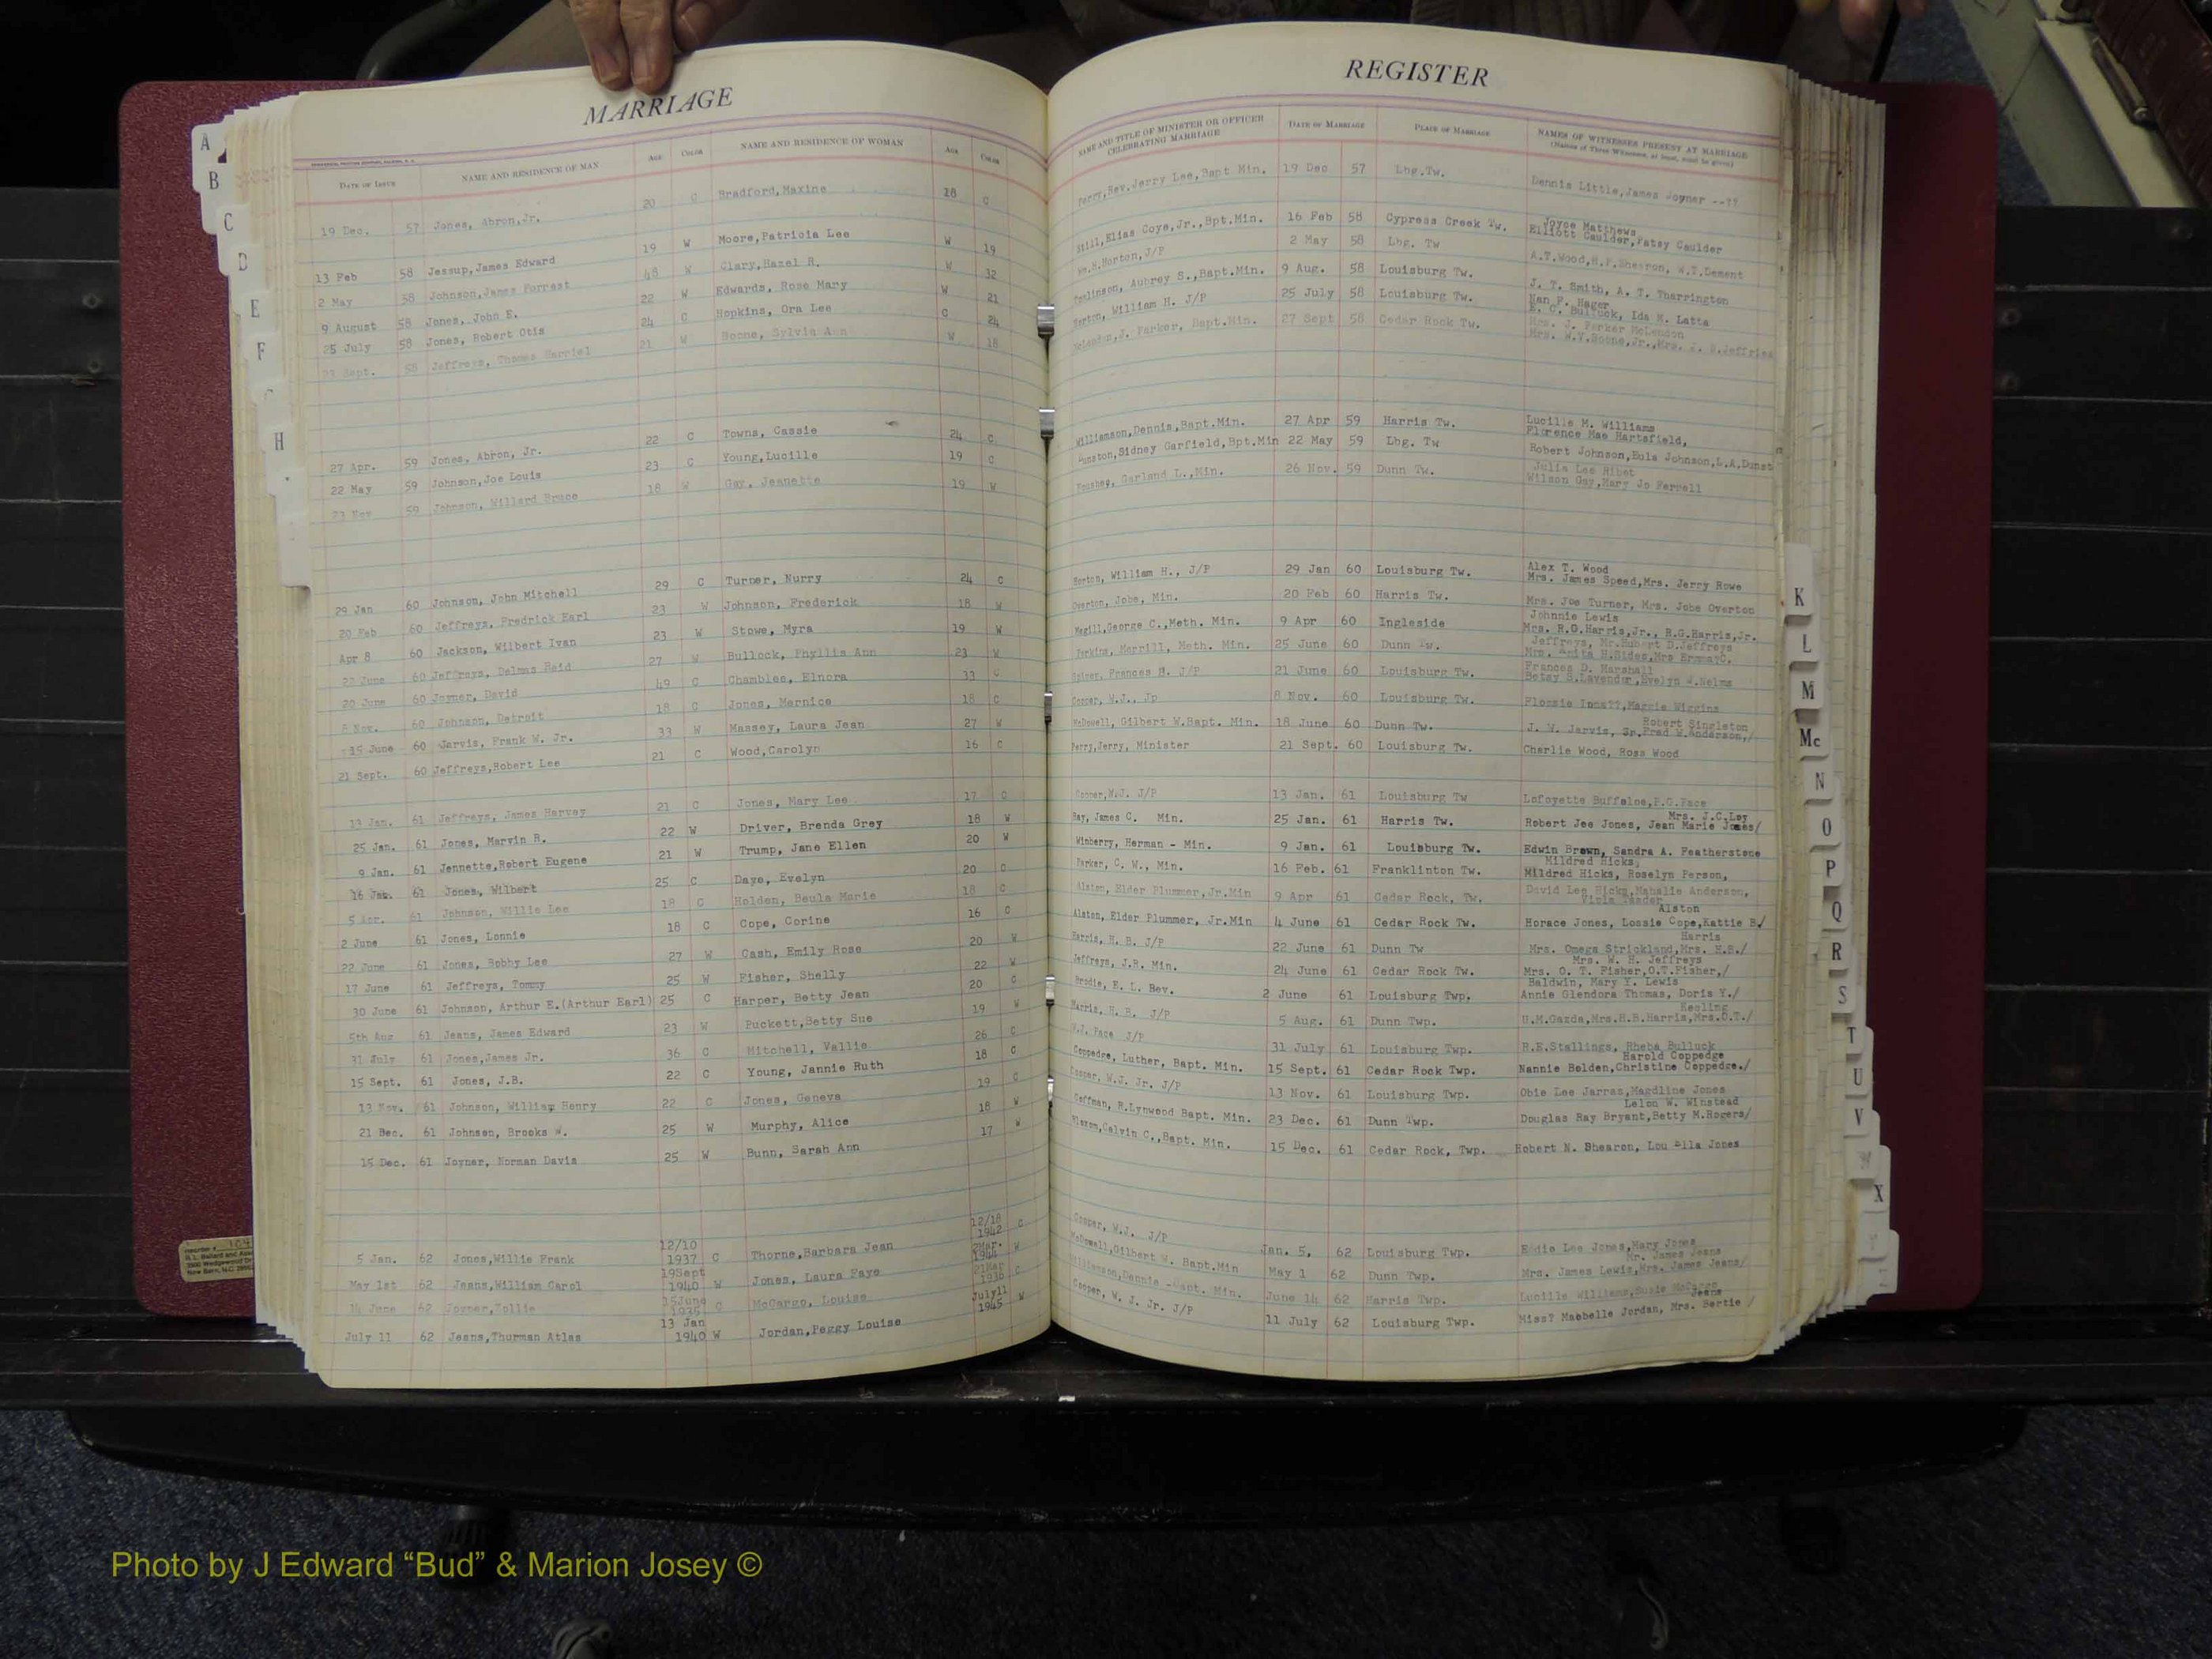 MARRIAGE
DATE OF ISSUE NAME AND RESIDENCE OF MAN AGE COLOR NAME AND RESIDENCE OF WOMAN AGE COLOR
19 Dec. 57 Jones, Abron,Jr. 20 C Bradford,Maxine 18 C
13 Feb 58 Jessup,James Edward 19 W Moore,Patricia Lee W 19
2 May 58 Johnson,James Forrest 48 W Clary,Hazel R. W 32
9 August 58 Jones, John E. 22 W Edwards, Rose Mary W 21
25 July 58 Jones, Robert Otis 24 C Hopkins, Ora Lee C 24
23 Sept. 58 Jeffreys, Thomas Harriel 21 W Boone, Sylvia Ann W 18
27 Apr. 59 Jones, Abron, Jr. 22 C Towns, Cassie 24 C
22 May 59 Johnson,Joe Louis 23 C Young,Lucille 19 C
23 Nov 59 Johnson, Willard Bruce 18 W Gay, Jeanette 19 W
29 Jan 60 Johnson, John Mitchell 29 C Turner, Nurry 24 C
20 Feb 60 Jeffreys, Fredrick Earl 23 W Johnson, Frederick 18 W
Apr 8 60 Jackson, Wilbert Ivan 23 W Stowe, Myra 19 W
22 June 60 Jeffreys, Delmas Reid 27 W Bullock, Phyllis Ann 23 W
20 June 60 Joyner, David 49 C Chamblee, Elnora 33 C
8 Nov. 60 Johnson, Detroit 18 C Jones, Mernice 18 C
15 June 60 Jarvis, Frank W. Jr. 33 W Massey, Laura Jean 27 W
21 Sept. 60 Jeffreys,Robert Lee 21 C Wood,Carolyn 16 C
13 Jan. 61 Jeffreys, James Harvey 21 C Jones, Mary Lee 17 C
25 Jan. 61 Jones, Marvin R. 22 W Driver, Brenda Grey 18 W
9 Jan. 61 Jennette,Robert Eugene 21 W Trump, Jane Ellen 20 W
16 Jan. 61 Jones, Wilbert 25 C Daye, Evelyn 20 C
5 Apr. 61 Johnson, Willie Lee 18 C Holden, Beula Marie 18 C
2 June 61 Jones, Lonnie 18 C Cope, Corine 16 C
22 June 61 Jones, Bobby Lee 27 W Cash, Emily Rose 20 W
17 June 61 Jeffreys, Tommy 25 W Fisher, Shelly 22 W
30 June 61 Johnson, Arthur E.(Arthur Earl) 25 C Harper, Betty Jean 20 C
5th Aug 61 Jeans, James Edward 23 W Puckett,Betty Sue 19 W
31 July 61 Jones,James Jr. 36 C Mitchell, Vallie 26 C
15 Sept. 61 Jones, J.B. 22 C Young, Jannie Ruth 18 C
13 Nov. 61 Johnson, William Henry 22 C Jones, Geneva 19 C
21 Dec. 61 Johnson, Brooks W. 25 W Murphy, Alice 18 W
15 Dec. 61 Joyner, Norman Davis 25 W Bunn, Sarah Ann 17 W
5 Jan. 62 Jones,Willie Frank 12/10 1937 C Thorne,Barbara Jean 12/18 1942 C
May 1st 62 Jeans,William Carol 19Sept 1940 W Jones, Laura Faye 2Mar. 1944 W
14 June 62 Joyner,Zollie 15June 1935 C McCargo, Louise 21Mar 1936 C
July 11 62 Jeans,Thurman Atlas 13 Jan 1940 W Jordan,Peggy Louise July11 1945 W
REGISTER
NAME AND TITLE OF MINISTER OR OFFICER CELEBRATING MARRIAGE DATE OF MARRIAGE PLACE OF MARRIAGE NAMES OF WITNESSES PRESENT AT MARRIAGE
(Names of Three Witnesses, at least, must be given)
Perry,Rev.Jerry Lee,Bapt Min. 19 Dec 57 Lbg.Tw. Dennis Little,James Joyner --??
Joyce Matthews
Still,Elias Coye,Jr.,Bpt.Min. 16 Feb 58 Cypress Creek Tw. Elliott Caulder,Patsy Caulder
Wm.H.Horton,J/P 2 May 58 Lbg. Tw A.T.Wood,H.F.Shearon, W.T.Dement
Tomlinson, Aubrey S.,Bapt.Min. 9 Aug. 58 Louisburg Tw. J. T. Smith, A. T. Tharrington
Nan F. Hager
Horton, William H. J/P 25 July 58 Louisburg Tw. E. C. Bulluck, Ida M. Latta
Mrs. J. Parker McLendon
McLendon,J. Parker, Bapt.Min. 27 Sept 58 Cedar Rock Tw. Mrs. W.V.Boone,Jr.,Mrs. J. B.Jeffries
Lucille M. Williams
Williamson,Dennis,Bapt.Min. 27 Apr 59 Harris Tw. Florence Mae Hartsfield,
Dunston,Sidney Garfield,Bpt.Min 22 May 59 Lbg. Tw Robert Johnson,Eula Johnson,L.A.Dunst
Julia Lee Ribet
Foushee, Garland L.,Min. 26 Nov. 59 Dunn Tw. Wilson Gay,Mary Jo Ferrell
Alex T. Wood
Horton, William H., J/P 29 Jan 60 Louisburg Tw. Mrs. James Speed,Mrs. Jerry Rowe
Overton, Jobe, Min. 20 Feb 60 Harris Tw. Mrs. Joe Turner, Mrs. Jobe Overton
Johnnie Lewis
Megill,George C.,Meth. Min. 9 Apr 60 Ingleside Mrs. R.G.Harris,Jr., R.G.Harris,Jr.
Jeffreys, Mr.Hubert D.Jeffreys
Perkins, Merrill, Meth. Min. 25 June 60 Dunn Tw. Mrs. Anita H.Sides,Mrs EmmayC.
Frances D. Marshall
Spivey, Frances B. J/P 21 June 60 Louisburg Tw. Betsy S.Lavender,Evelyn W.Nelms
Cooper, W.J., Jp 8 Nov. 60 Louisburg Tw. Flossie Inna??,Maggie Wiggins
Robert Singleton
McDowell, Gilbert W.Bapt. Min. 18 June 60 Dunn Tw. J. W. Jarvis, Sr,Brad W.Anderson,/
Perry,Jerry, Minister 21 Sept. 60 Louisburg Tw. Charlie Wood, Ross Wood
Cooper,W.J. J/P 13 Jan. 61 Louisburg Tw Lafoyette Buffaloe,P.O.Pace
Mrs. J.C.Loy
Ray, James C. Min. 25 Jan. 61 Harris Tw. Robert Jee Jones, Jean Marie Jones/
Winberry, Herman - Min. 9 Jan. 61 Louisburg Tw. Edwin Brown, Sandra A. Featherstone
Mildred Hicks,
Parker, C. W., Min. 16 Feb. 61 Franklinton Tw. Mildred Hicks, Roselyn Person,
Alston, Elder Plummer,Jr.Min 9 Apr 61 Cedar Rock, Tw. David Lee Hicks,Mahalie Anderson,
Alston
Alston, Elder Plummer, Jr.Min 4 June 61 Cedar Rock Tw. Horace Jones, Lossie Cope,Kattie B/
Harris
Harris, H. B. J/P 22 June 61 Dunn Tw Mrs. Omega Strickland,Mrs. H.B./
Mrs. W. H. Jeffreys
Jeffreys, J.R. Min. 24 June 61 Cedar Rock Tw. Mrs. O. T. Fisher,O.T.Fisher,/
Baldwin, Mary Y. Lewis
Brodie, E. L. Rev. 2 June 61 Louisburg Twp. Annie Glendora Thomas, Doris Y./
Keeling
Harris, H. B. J/P 5 Aug. 61 Dunn Twp. U.M.Gazda,Mrs.H.B.Harris,Mrs.O.T./
W.J. Pace J/P 31 July 61 Louisburg Twp. R.E.Stallings, Rheba Bulluck
Harold Coppedge
Coppedge, Luther, Bapt. Min. 15 Sept. 61 Cedar Rock Twp. Nannie Bolden,Christine Coppedge./
Cooper, W.J. Jr. J/P 13 Nov. 61 Louisburg Twp. Obie Lee Jarras,Magdline Jones
Lelon W. Winstead
Coffman, R.Lynwood Bapt. Min. 23 Dec. 61 Dunn Twp. Douglas Ray Bryant,Betty M.Rogers/
Calvin C.,Bapt. Min. 15 Dec. 61 Cedar Rock, Twp. Robert N. Shearon, Lou Ella Jones
Cooper, W.J. J/P Jan. 5, 62 Louisburg Twp. Eddie Lee Jones,Mary Jones
Mr. James Jeans
McDowell,Gilbert W. Bapt.Min May 1 62 Dunn Twp. Mrs. James Lewis,Mrs. James Jeans/
Williamson,Dennie -Bapt. Min. June 14 62 Harris Twp. Lucille Williams,Susie McCargo
Jeans
Cooper, W. J. Jr. J/P 11 July 62 Louisburg Twp. Miss? Maebelle Jordan, Mrs. Bertie /
A
B
C
D
E
F
H
K
L
M
Mc
N
O
P
Q
R
S
T
U
V
W
X
Y
Photo by J Edward “Bud” & Marion Josey ©